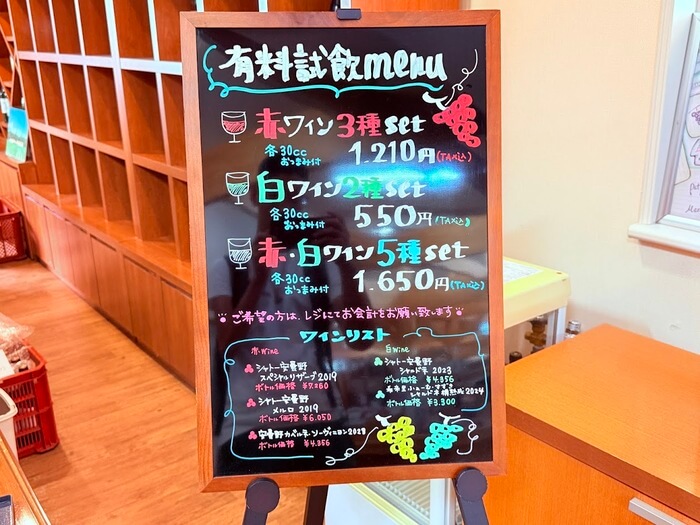 有料試飲menu
赤ワイン3種set
各30cc
おつまみ付
1.210円(TAX込)
白ワイン2種set
各30cc
おつまみ付
550円(TAX込)
赤・白ワイン5種set
各30cc
おつまみ付
1.650円(TAX込)
ご希望の方は、レジにてお会計をお願い致します
ワインリスト
赤Wine
シャトー安曇野
スペシャルリザーブ2019
ボトル価格
シャトー安曇野
メルロ 2019
ボトル価格 ¥6.050
安曇野カベルネ・ソーヴィニヨン2023
ボトル価格 ¥4.356
白Wine
シャトー安曇野
シャルドネ 2023
ボトル価格 ¥4.356
シャルドネ 樽熟成2024
ボトル価格 ¥3.300